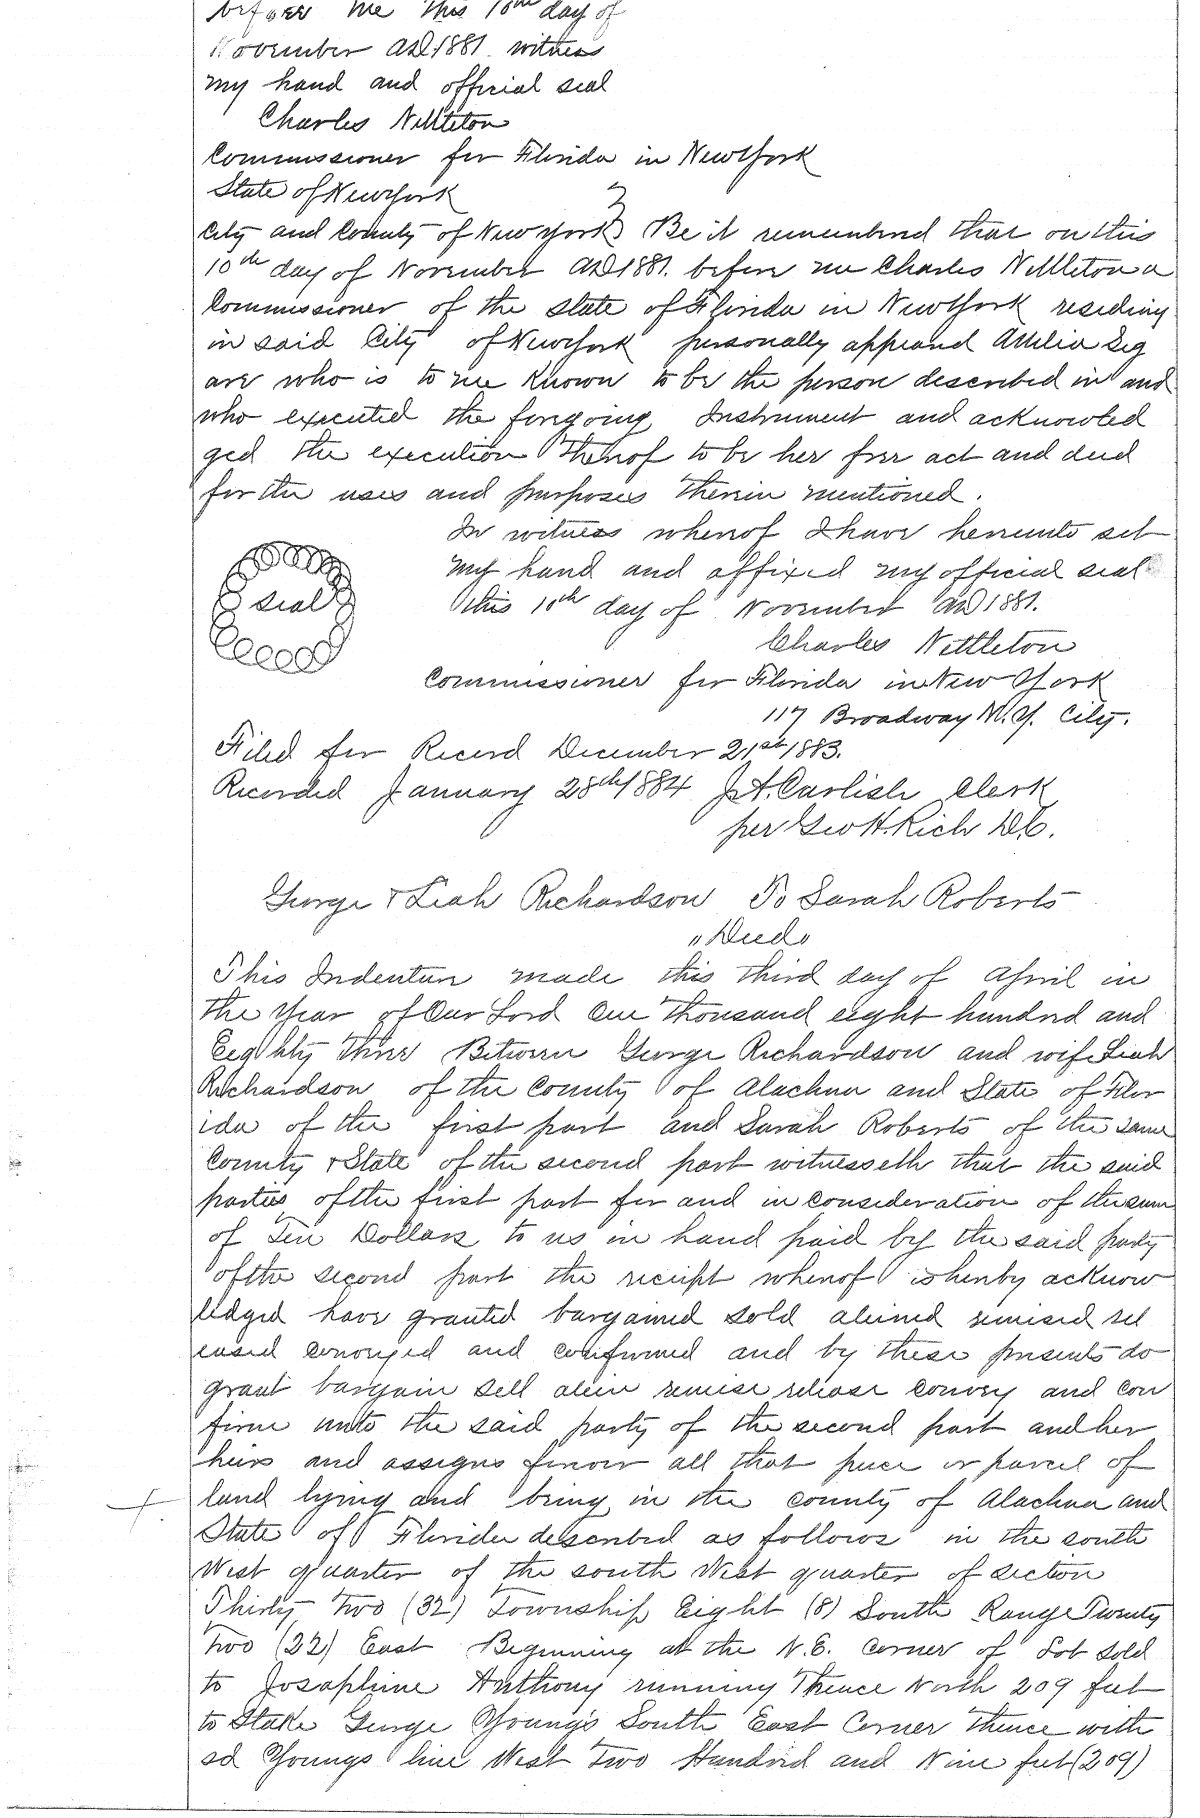 before me this 10th day of
November AD 1881. witness
my hand and official seal
Charles Nettleton
Commissioner for Florida in New York
State of New York
City and County of New York } Be it remembered that on this
10th day of November AD 1881. before me Charles Nettleton a
Commissioner of the State of Florida in New York residing
in said City of New York personally appeared Amelia Seg
are who is to me Known to be the person described in and
who executed the foregoing Instrument and acknowled
ged the execution thereof to be her free act and deed
for the uses and purposes therein mentioned.
In witness whereof I have hereunto set
my hand and affixed my official seal
this 10th day of November AD 1881.
Seal
Charles Nettleton
Commissioner for Florida in New York
117 Broadway N.Y. City.
Filed for Record December 21st 1883.
Recorded January 28th 1884 J.A. Carlisle Clerk
per Geo H. Rich D.C.
George & Leah Richardson To Sarah Roberts
"Deed"
This Indenture made this third day of April in
the Year of Our Lord One thousand eight hundred and
Eeghty three Between George Richardson and wife Leah
Richardson of the County of Alachua and State of Flor
ida of the first part and Sarah Roberts of the same
County & State of the second part witnesseth that the said
parties of the first part for and in consideration of the sum
of Ten Dollars to us in hand paid by the said party
of the second part the receipt whereof is hereby acknow
ledged have granted bargained sold aliened remised rel
eased conveyed and confirmed and by these presents do
grant bargain sell alien remise release convey and con
firm unto the said party of the second part and her
heirs and assigns forever all that piece or parcel of
land lying and being in the county of Alachua and
State of Florida described as follows in the south
West quarter of the south West quarter of section
Thirty two (32) Township Eight (8) South Range Twenty
Two (22) East Beginning at the N.E. corner of Lot sold
to Josaphine Anthony running Thence North 209 feet
to Stake George Young's South East Corner thence with
sd Youngs line West Two Hundred and Nine feet (209)